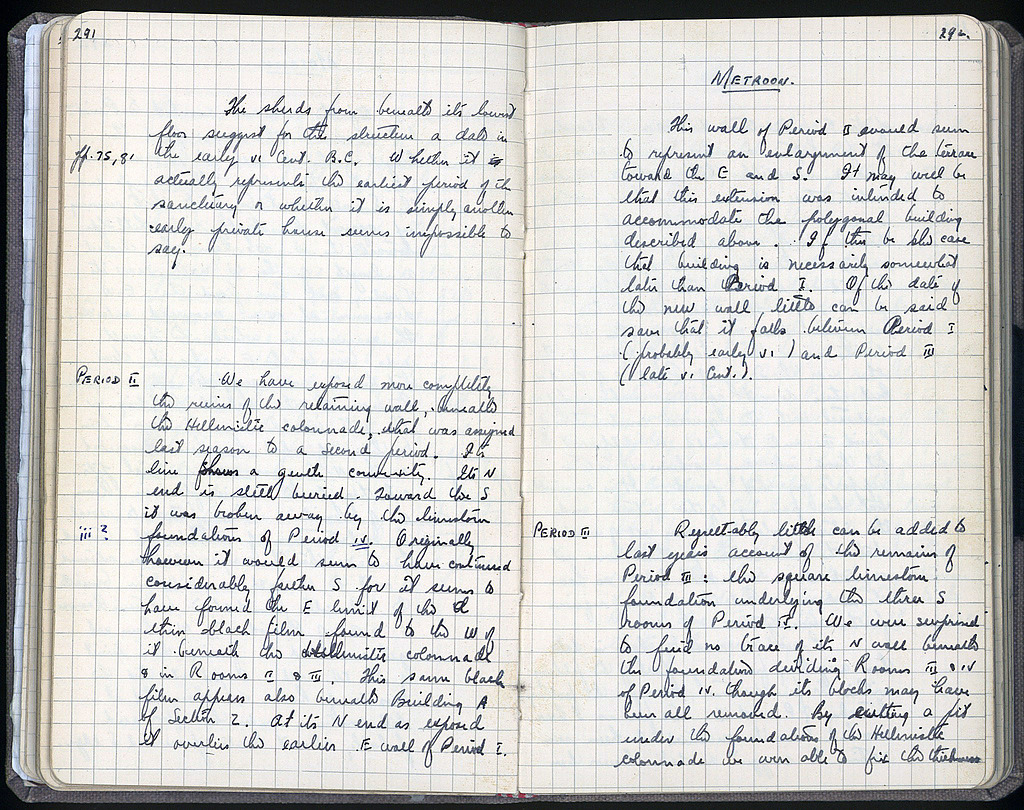 291
The sherds from beneath its lowest
floor suggest for the structure a date in
pp. 75, 81
the early vi Cent. B.C. Whether it
actually represents the earliest period of the
sanctuary or whether it is simply another
early private house seems impossible to
say.
PERIOD II
We have exposed more completely
the ruins of the retaining wall, beneath
the Hellenistic colonnade, that was assigned
last season to a second period. Its
line shows a gentle convexity. Its N
end is still buried. Toward the S
it was broken away by the limestone
iii ?
foundations of Period IV. Originally
however it would seem to have continued
considerably farther S for it seems to
have formed the E limit of the
thin black film found to the W of
it beneath the Hellenistic colonnade
& in Rooms II & III. This same black
film appears also beneath Building A
of Section Z. At its N end as exposed
it overlies the earlier E wall of Period I.
292
METROON.
This wall of Period II would seem
to represent an enlargement of the terrace
toward the E and S. It may well be
that this extension was intended to
accommodate the polygonal building
described above. If this be the case
that building is necessarily somewhat
later than Period I. Of the date of
the new wall little can be said
save that it falls between Period I
(probably early vi) and Period III
(late v. Cent.).
PERIOD III
Regrettably little can be added to
last year's account of the remains of
Period III: the square limestone
foundation underlying the three S
rooms of Period IV. We were surprised
to find no trace of its N wall beneath
the foundation dividing Rooms III & IV
of Period IV, though its blocks may have
been all removed. By cutting a pit
under the foundations of the Hellenistic
colonnade we were able to fix the thickness